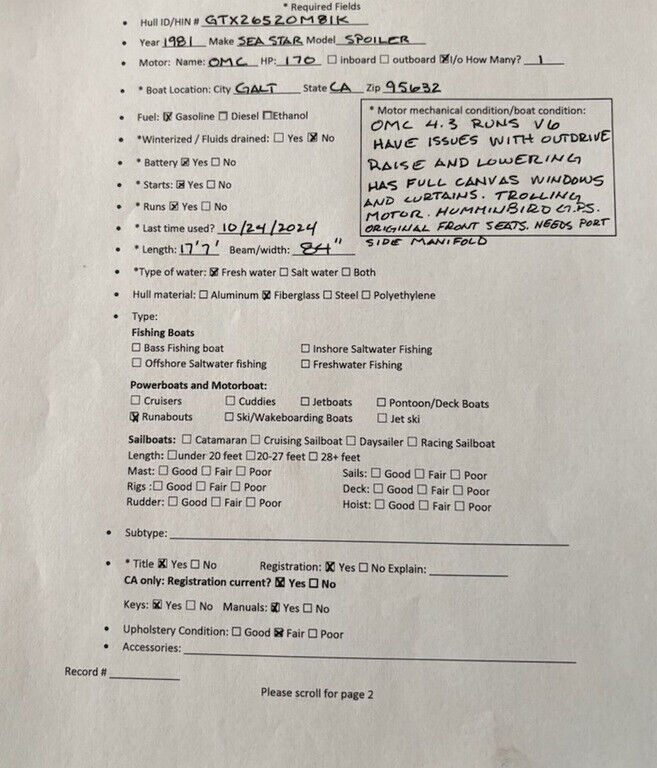 * Required Fields
• Hull ID/HIN # GTX26520M81K
• Year 1981 Make SEA STAR Model SPOILER
• Motor: Name: OMC HP: 170 ☐ inboard ☐ outboard ☒ I/o How Many? 1
• * Boat Location: City GALT State CA Zip 95632
• Fuel: ☒ Gasoline ☐ Diesel ☐Ethanol
• *Winterized / Fluids drained: ☐ Yes ☒ No
• * Battery ☒ Yes ☐ No
• * Starts: ☒ Yes ☐ No
• * Runs ☒ Yes ☐ No
• * Last time used? 10/24/2024
• * Length: 17'7' Beam/width: 84"
* Motor mechanical condition/boat condition:
OMC 4.3 RUNS V6
HAVE ISSUES WITH OUTDRIVE
RAISE AND LOWERING
HAS FULL CANVAS WINDOWS
AND CURTAINS. TROLLING
MOTOR. HUMMINBIRD G.P.S.
ORIGINAL FRONT SEATS. NEEDS PORT
SIDE MANIFOLD
• *Type of water: ☒ Fresh water ☐ Salt water ☐ Both
• Hull material: ☐ Aluminum ☒ Fiberglass ☐ Steel ☐ Polyethylene
• Type:
Fishing Boats
☐ Bass Fishing boat ☐ Inshore Saltwater Fishing
☐ Offshore Saltwater fishing ☐ Freshwater Fishing
Powerboats and Motorboat:
☐ Cruisers ☐ Cuddies ☐ Jetboats ☐ Pontoon/Deck Boats
☒ Runabouts ☐ Ski/Wakeboarding Boats ☐ Jet ski
Sailboats: ☐ Catamaran ☐ Cruising Sailboat ☐ Daysailer ☐ Racing Sailboat
Length: ☐under 20 feet ☐20-27 feet ☐ 28+ feet
Mast: ☐ Good ☐ Fair ☐ Poor Sails: ☐ Good ☐ Fair ☐ Poor
Rigs :☐ Good ☐ Fair ☐ Poor Deck: ☐ Good ☐ Fair ☐ Poor
Rudder: ☐ Good ☐ Fair ☐ Poor Hoist: ☐ Good ☐ Fair ☐ Poor
• Subtype:
• * Title ☒ Yes ☐ No Registration: ☒ Yes ☐ No Explain:
CA only: Registration current? ☒ Yes ☐ No
Keys: ☒ Yes ☐ No Manuals: ☒ Yes ☐ No
• Upholstery Condition: ☐ Good ☒ Fair ☐ Poor
• Accessories:
Record #
Please scroll for page 2